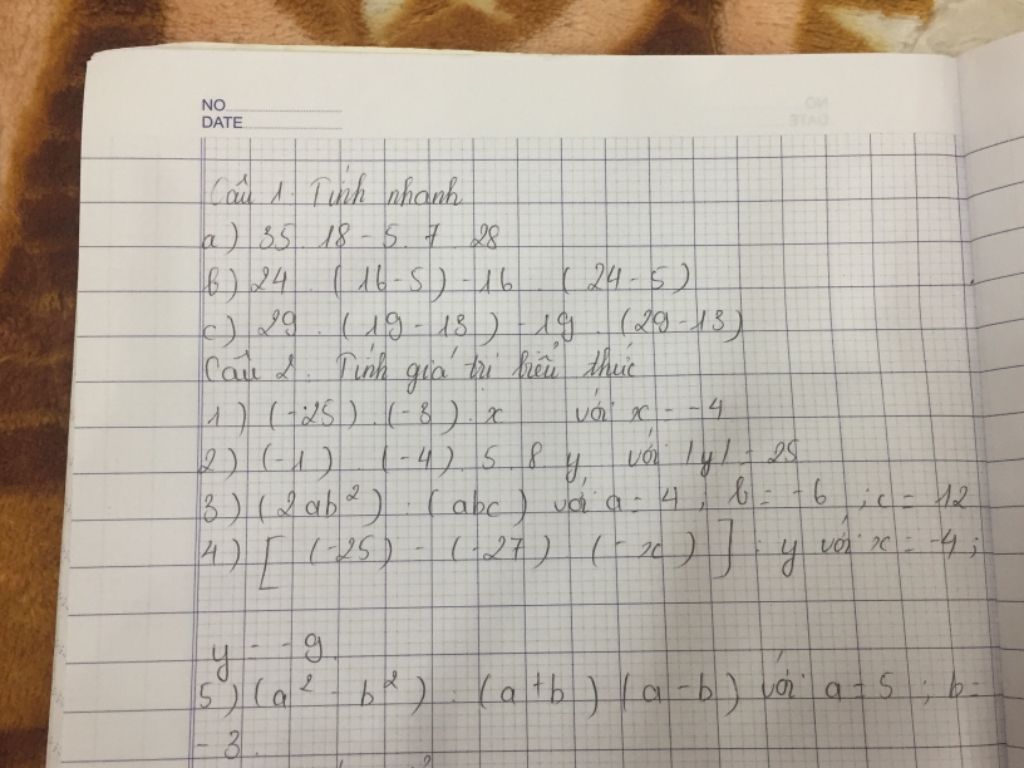 NO
DATE
Câu 1. Tính nhanh
a) 35. 18 - 5. 7. 28
b) 24. (16-5) - 16. (24-5)
c) 29. (19-13) - 19. (29-13)
Câu 2. Tính giá trị biểu thức
1) (-25). (-3). x với x = -4
2) (-1). (-4). 5. 8. y với |y| = 25
3) (2ab²) : (abc) với a = 4; b = -6; c = 12
4) [ (-25) - (-27) (-x) ] : y với x = -4;
y = -9.
5) (a² - b²) : (a+b) (a-b) với a = 5; b =
-3.